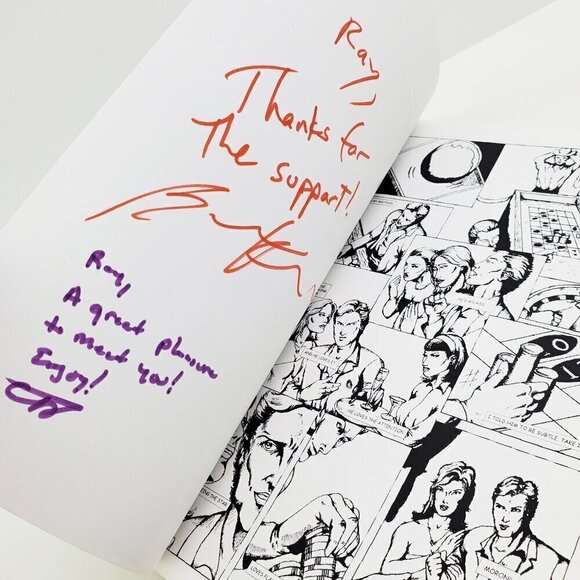 Ray,
Thanks for
The support!
Ray,
A great pleasure
to meet you!
Enjoy!
HE LOVES THE ATTENTION.
I TOLD HIM TO BE SUBTLE. TAKE
MORON.